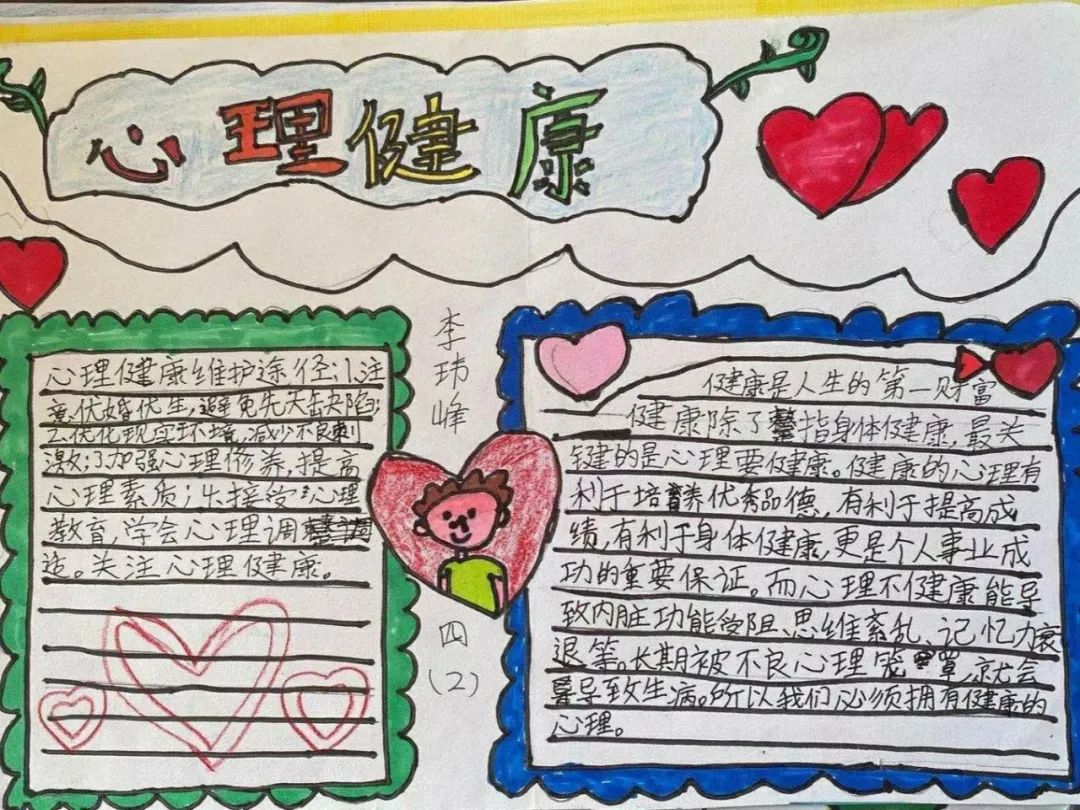 心理健康
心理健康维护途径:1.注
意优婚优生,避免先天缺陷;
2.优化现实环境,减少不良刺
激;3加强心理修养,提高
心理素质;4.接受心理
教育,学会心理调
适。关注心理健康。
李玮峰
四(2)
健康是人生的第一财富
健康除了指身体健康,最关
键的是心理要健康。健康的心理有
利于培养优秀品德,有利于提高成
绩,有利于身体健康,更是个人事业成
功的重要保证。而心理不健康能导
致内脏功能受阻、思维紊乱、记忆力衰
退等。长期被不良心理笼罩,就会
导致生病。所以我们必须拥有健康的
心理。